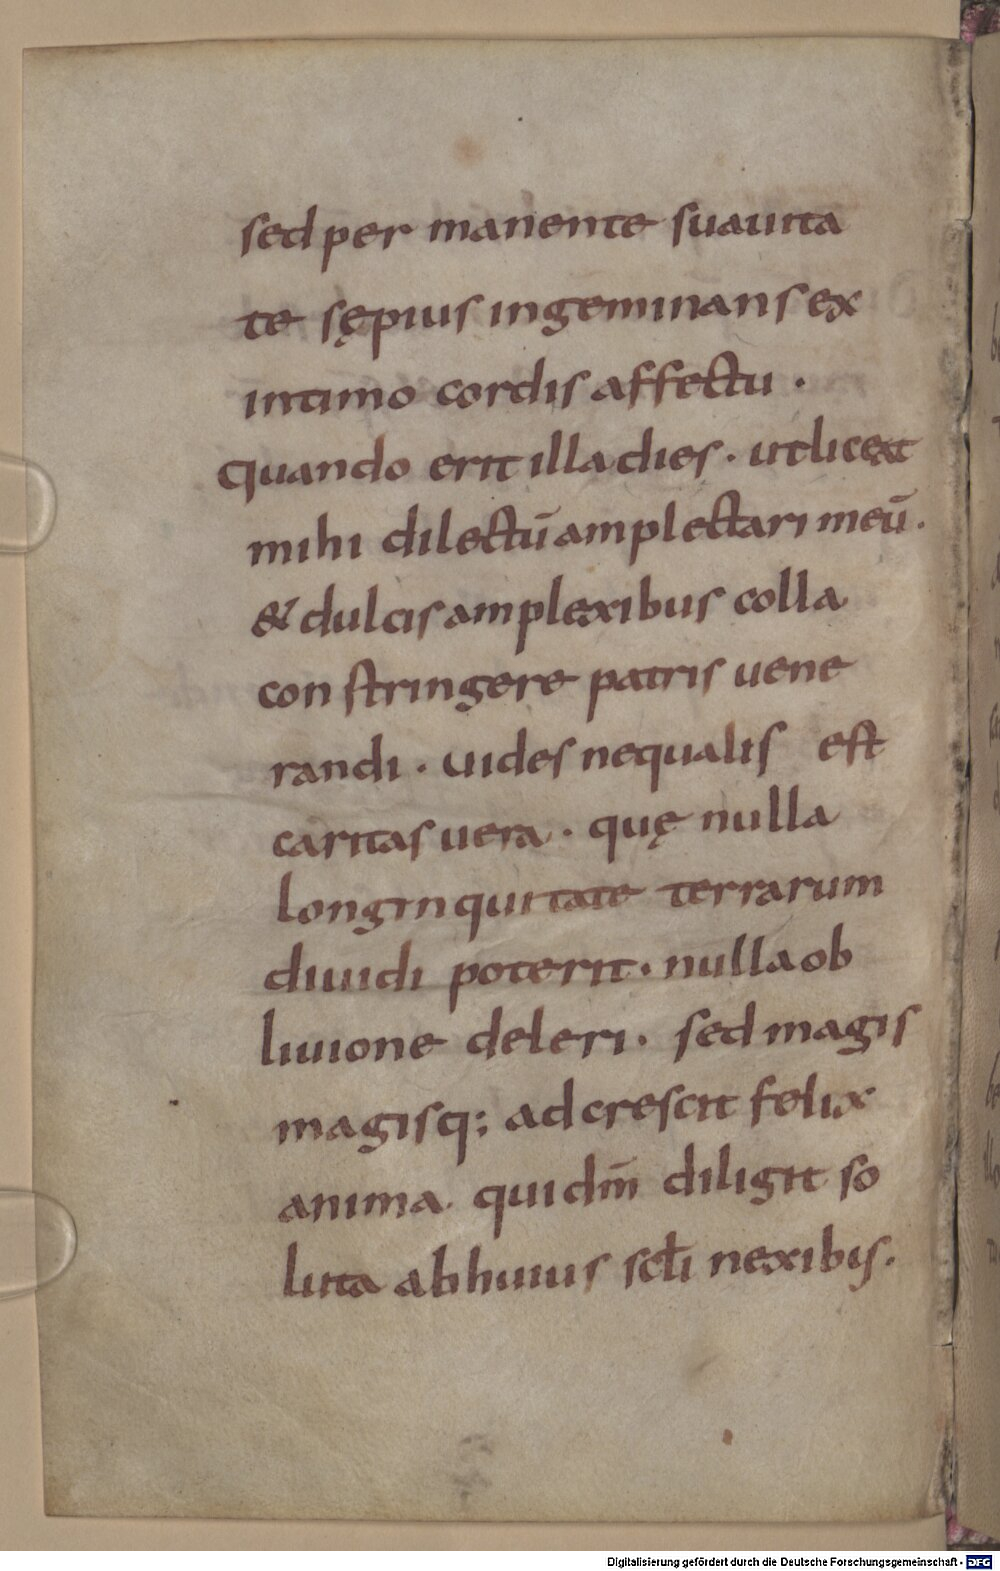 sed per manente suauita
te sępius ingeminans ex
intimo cordis affectu .
Quando erit illa dies . ut liceat
mihi dilectū amplectari meū .
& dulcis amplexibus colla
constringere patris uene
randi . uides nequalis est
caritas uera . quę nulla
longinquitate terrarum
diuidi poterit . nulla ob
liuione deleri . sed magis
magisq; ad crescit felix
anima . qui dm̄ diligit so
luta ab huius scłi nexibus .
Digitalisierung gefördert durch die Deutsche Forschungsgemeinschaft - DFG